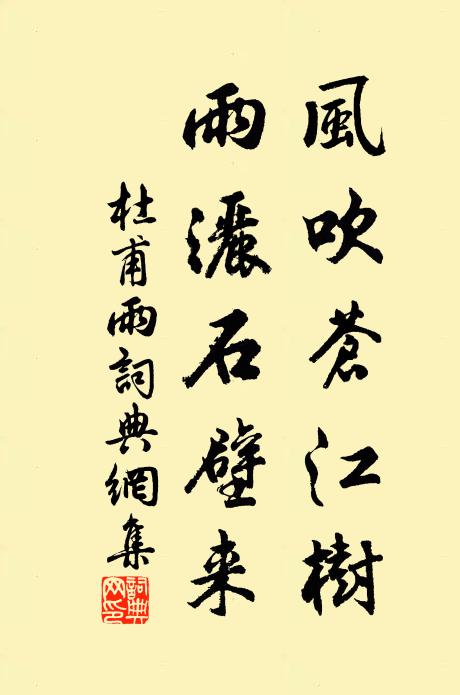 風吹蒼江樹
雨灑石壁来
杜甫雨詞典網集
詞典網印